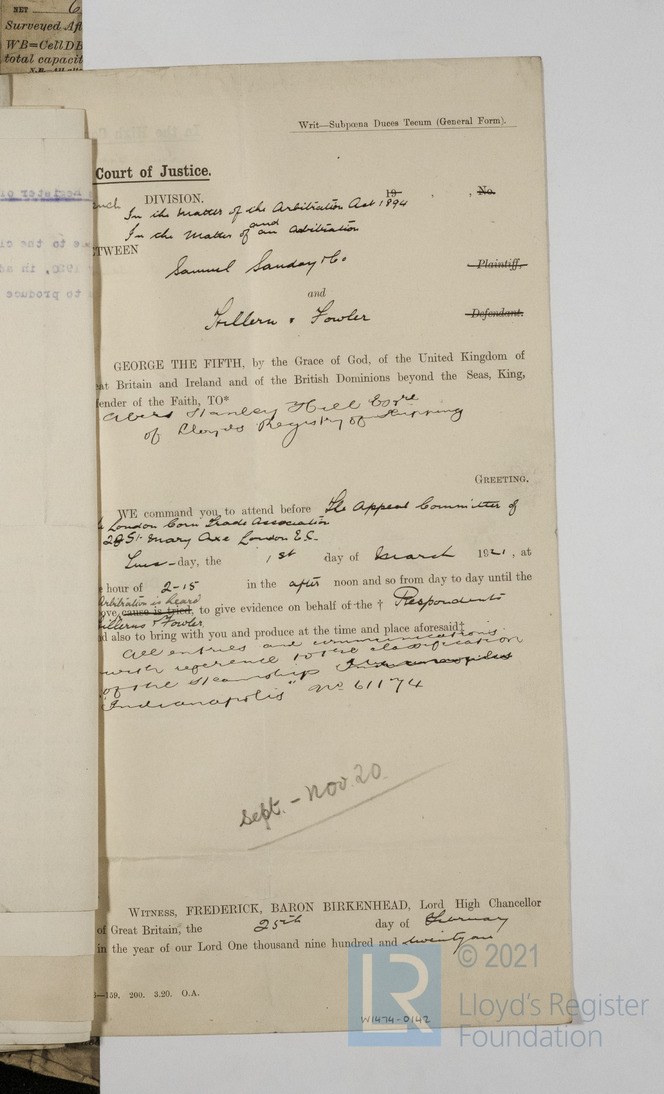 NET 6
Surveyed Aft
WB=CellDB
total capacit
Writ—Subpœna Duces Tecum (General Form).
Court of Justice.
DIVISION. 19 , No.
In the matter of the Arbitration Act 1894
and
In the Matter of an Arbitration
TWEEN
Samuel Sanday & Co Plaintiff,
and
Hillern & Fowler Defendant.
GEORGE THE FIFTH, by the Grace of God, of the United Kingdom of
eat Britain and Ireland and of the British Dominions beyond the Seas, King,
fender of the Faith, TO*
Stanley Hill Esqre
of Lloyds Registry of Shipping
GREETING.
WE command you to attend before The Appeal Committee of
London Corn Trade Association
28 St. Mary Axe London E.C.
Tues-day, the 1st day of March 1921, at
hour of 2-15 in the after noon and so from day to day until the
Arbitration is heard
ove cause is tried, to give evidence on behalf of the † Respondents
illerns & Fowler
d also to bring with you and produce at the time and place aforesaid‡
All entries and communications
with reference to the classification
of the steamship
"Indianapolis" No 61174
Sept. - Nov. 20.
WITNESS, FREDERICK, BARON BIRKENHEAD, Lord High Chancellor
of Great Britain, the 25th day of February
in the year of our Lord One thousand nine hundred and twenty one
—159. 200. 3.20. O.A.
W1474-0142
LR
© 2021
Lloyd's Register
Foundation